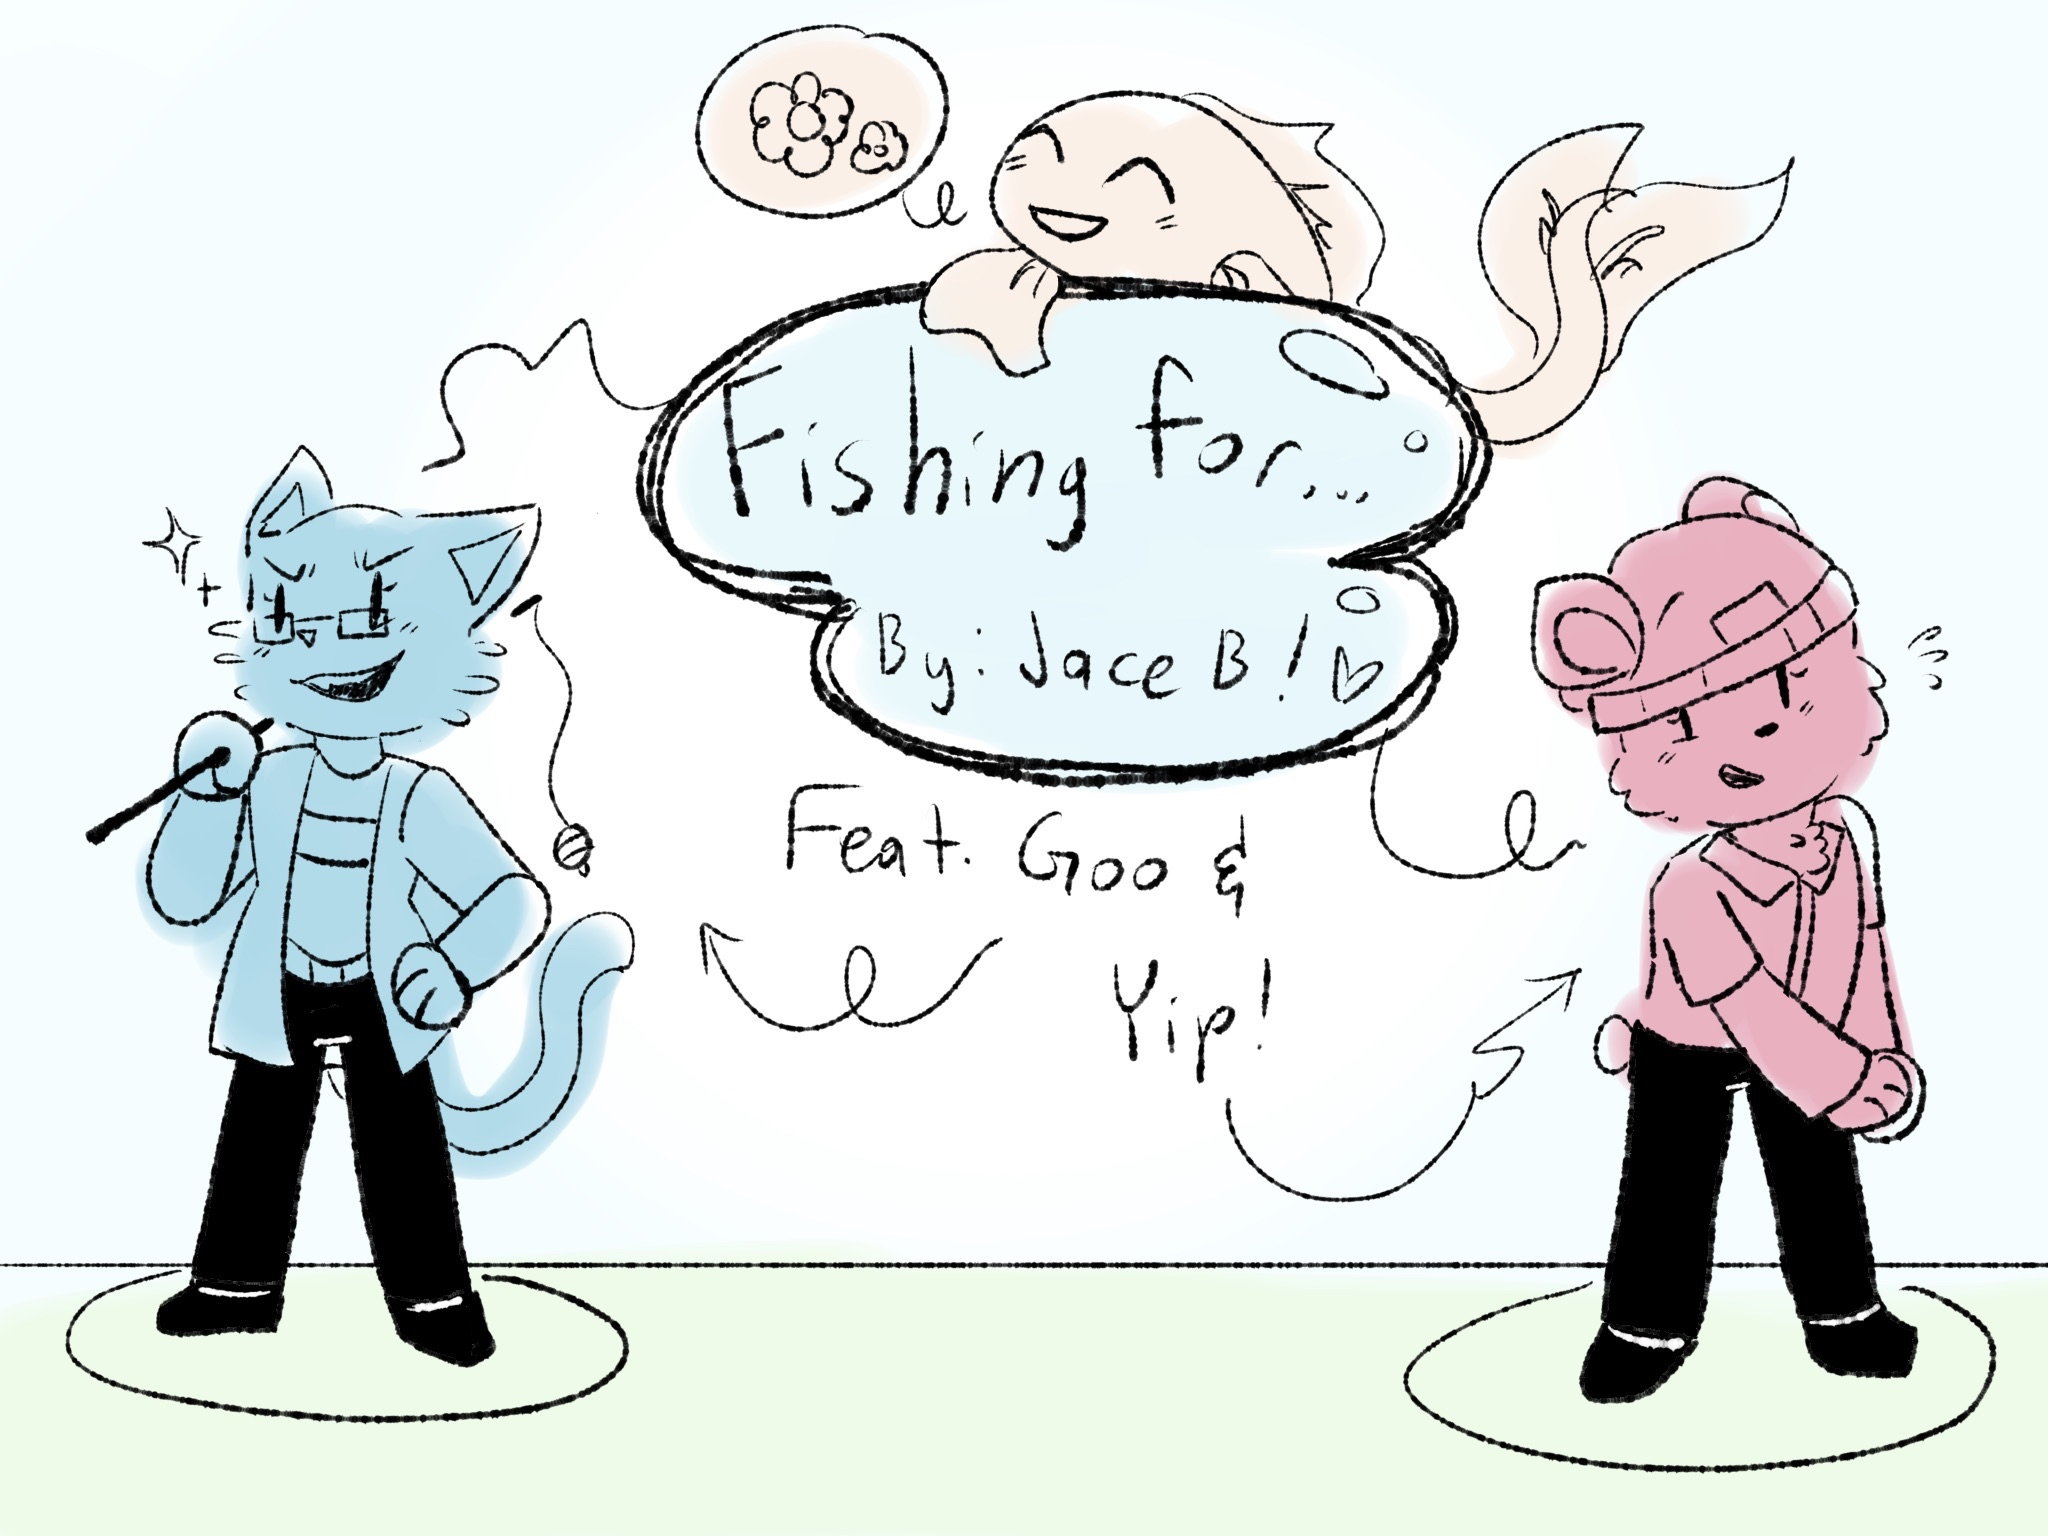 Fishing for...
By: Jace B!
Feat. Goo &
Yip!